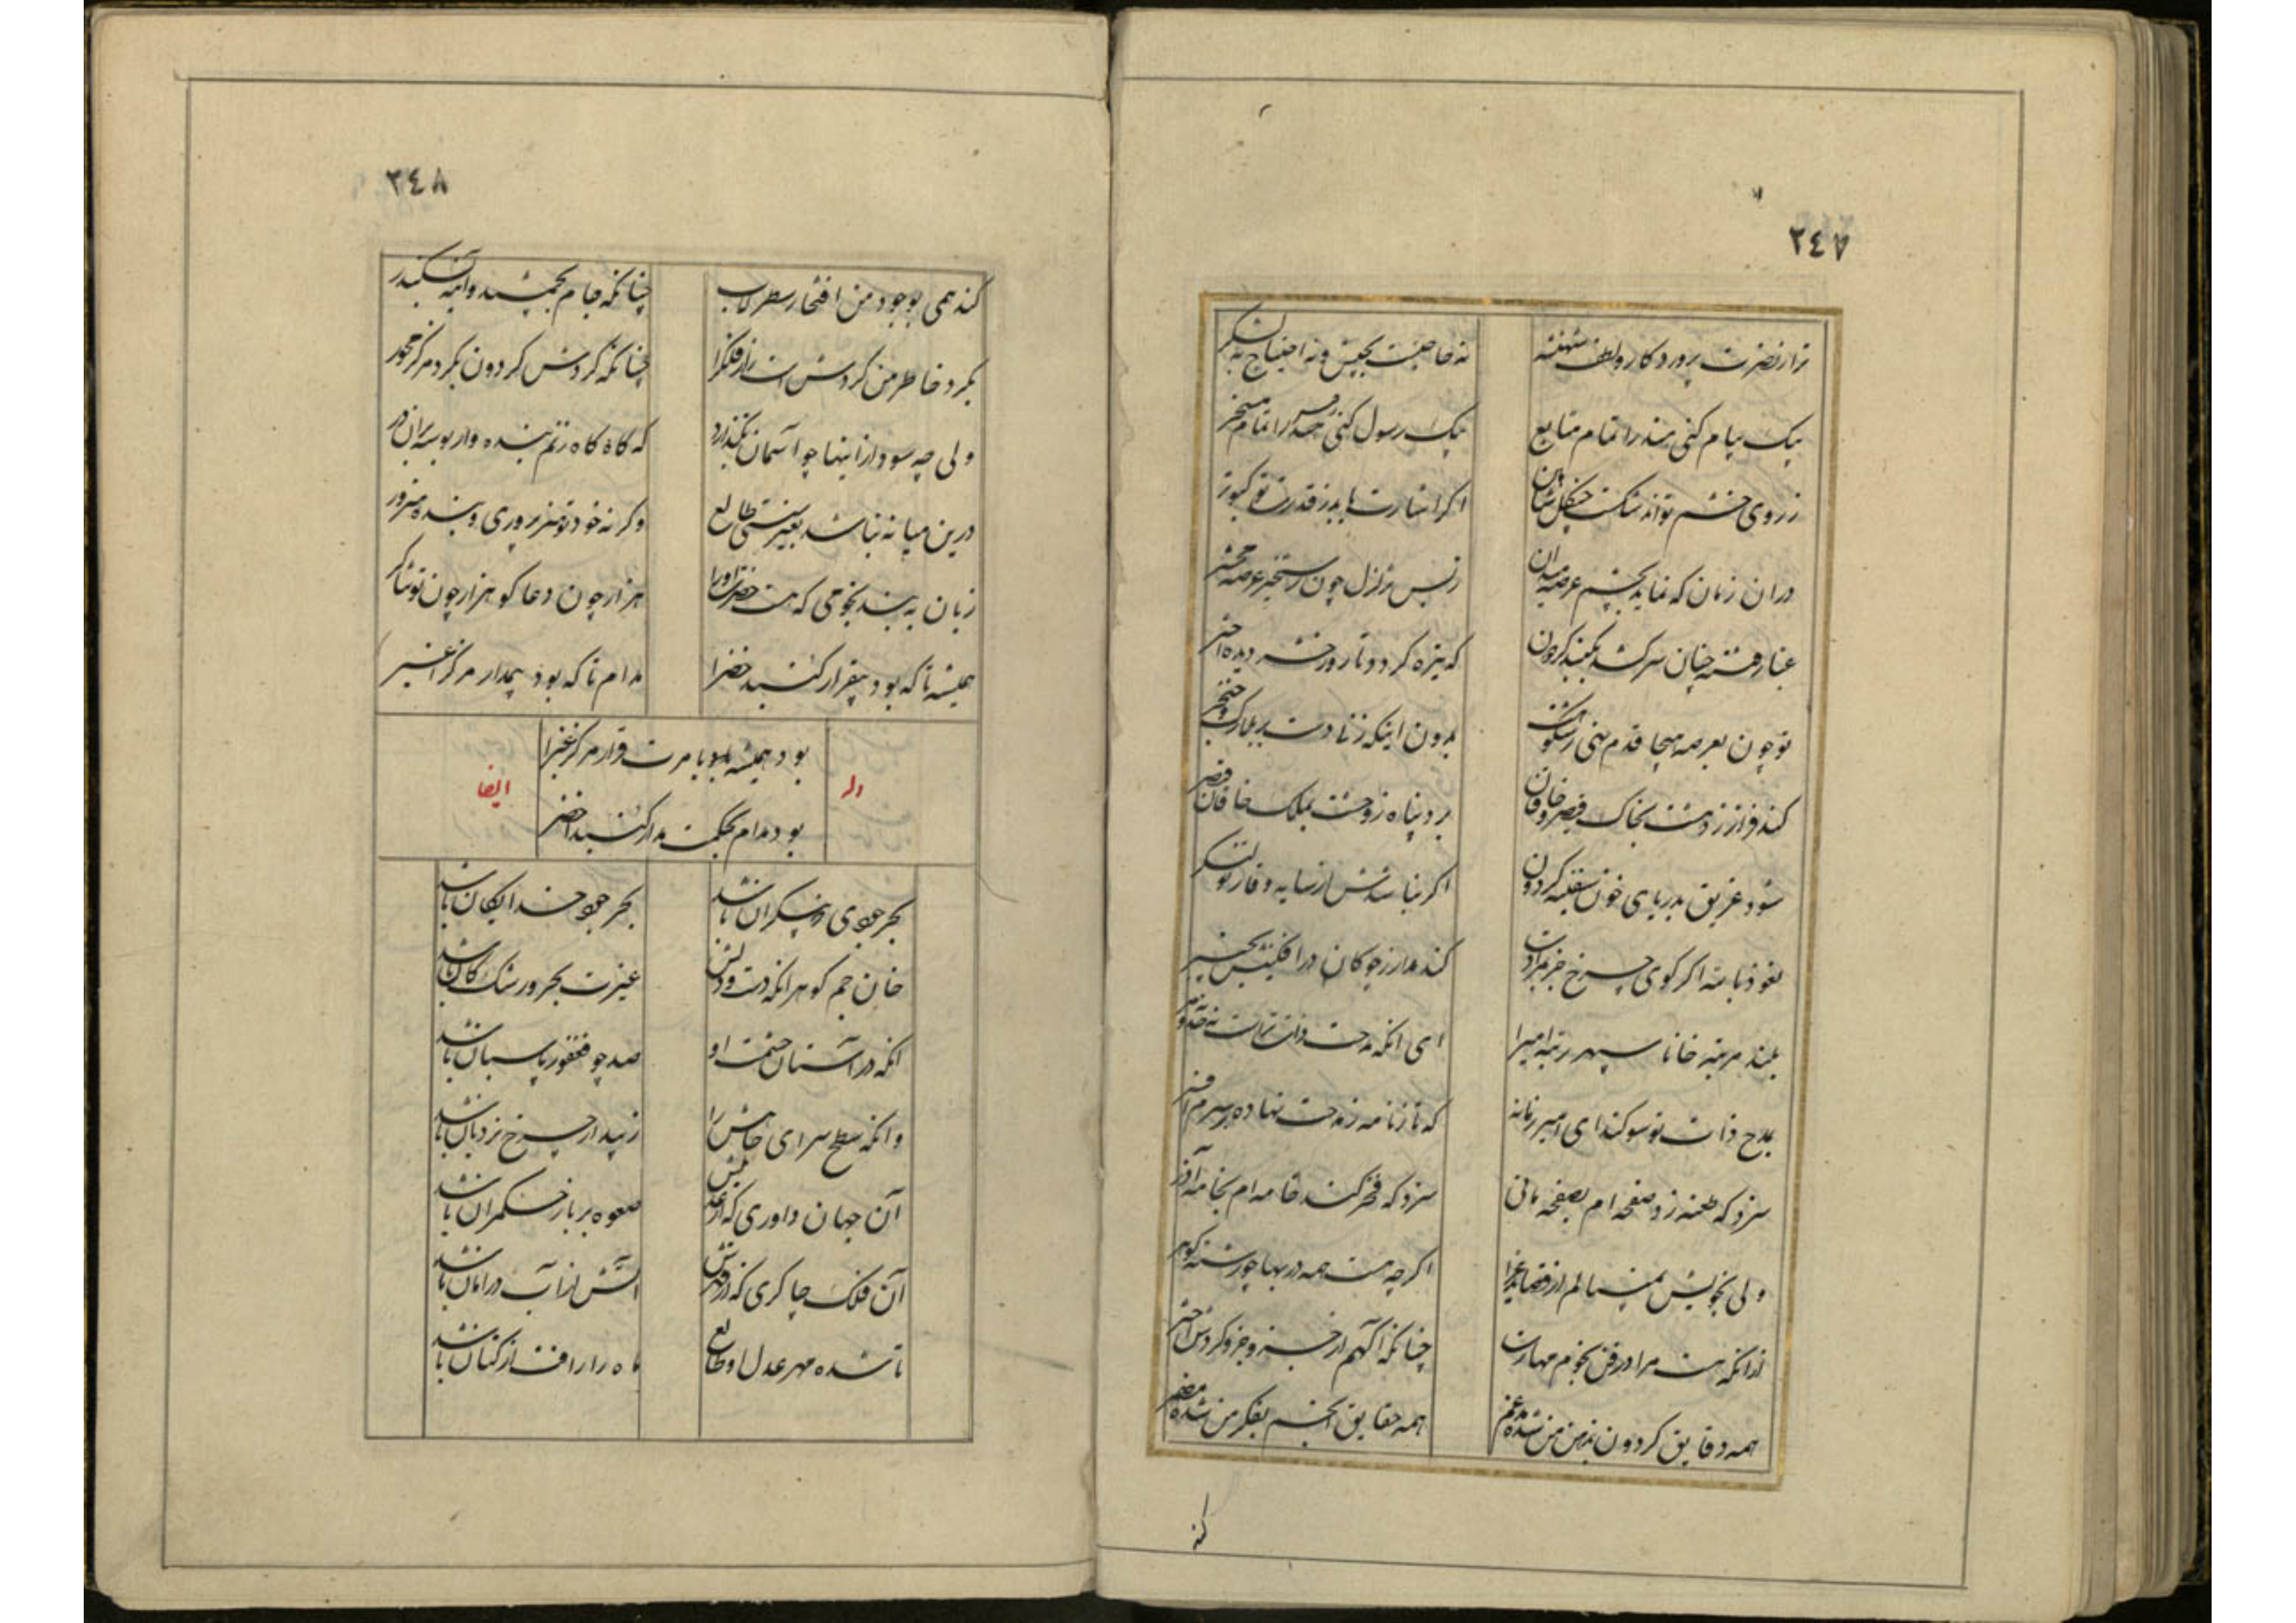 ٢٤٧
ترا ز نصرت پروردکار و لطف شهنشه
نه حاجتست بجیش و نه احتیاج به لشکر
بیک پیام کنی هند را تمام متابع
بیک رسول کنی را تمام مسخر
ز روی خشم تواند شکست چنکل شاهین
اکر اشارت یابد ز قدرت تو کبوتر
دران زمان که نماید بچشم عرصه میدان
زبس تزلزل چون رستخیز عرصه محشر
غبار فتنه چنان سر کشد بکنبد کردون
که تیره کردد و تار ور خشـ دیده اختر
تو چون بعرصه هیجا قدم نهی ز شکوهت
بدون اینکه زنا دست بر بلارک و خنجر
کند فرار ز دهشت بخاک قیصر خاقان
برد پناه ز وحشت بملک خاقان قیصر
شود غریق بدریای خون سفینه کردون
اکر نباشدش از سایه وقار تو لنکر
نعوذ بالله اکر کوی چرخ جز بمرادت
کند مدار ز چوکان در افکنیش بچنبر
بلند مرتبه خانا سپهر رتبه امیرا
ای انکه مدحت ذات تراست نه حد و مر
بمدح ذات تو سوکند ای امیر زمانه
که تا ز نامه ز مدحت نهاده بر سرم افسر
سزد که طعنه زد صفحه ام بصفحه مانی
سزد که فخر کند خامه ام بخامه آذر
ولی بخویش نمینالم از قصاید غرا
اکر چه هست همه در بها چو رشته کوهر
ازانکه هست مرا در فن نجوم مهارت
چنانکه آکهم از خیر و جز و کردش اختر
همه دقایق کردون بذهن من شده مدغم
همه حقایق انجم بفکر من شده مضمر
کند
٢٤٨
کند همی بوجود من افتخار سطرلاب
چنانکه جام بجمشید و آینه بسکندر
بکرد خاطر من کردش است راز فلک را
چنانکه کردش کردون بکرد مرکز محور
ولی چه سود از اینها چو آسمان نکذارد
که کاه کاه زنم بنده وار بوسه بران در
درین میانه نباشد بغیر سستی طالع
وکر نه خود تو هنر پروری و بنده هنرور
زبان به بند نجومی که هست حضرت او را
هزار چون دعا کو هزار چون تو ثناکر
همیشه تا که بود بیقرار کنبد خضرا
مدام تا که بود پیمدار مرکز اغبر
بود همیشه بامرت قرار مرکز غبرا
بود مدام بحکمت مدار کنبد اخضر
وله
ایضا
بحر جودی که بیکران باشد
بحر جود خدایکان باشد
خان جم کوهر انکه دست و دلش
غیرت بحر و رشک کان باشد
انکه در آستان حشمت او
صد چو فغفور پاسبان باشد
وانکه سطح سرای جاهش را
زیبد ار چرخ نردبان باشد
آن جهان داوری که از عدلش
صعوه بر باز حکمران باشد
آن فلک چاکری که از قهرش
آتش از آب در امان باشد
تا شده مهر عدل او طالع
ماه را رافت از کتان باشد